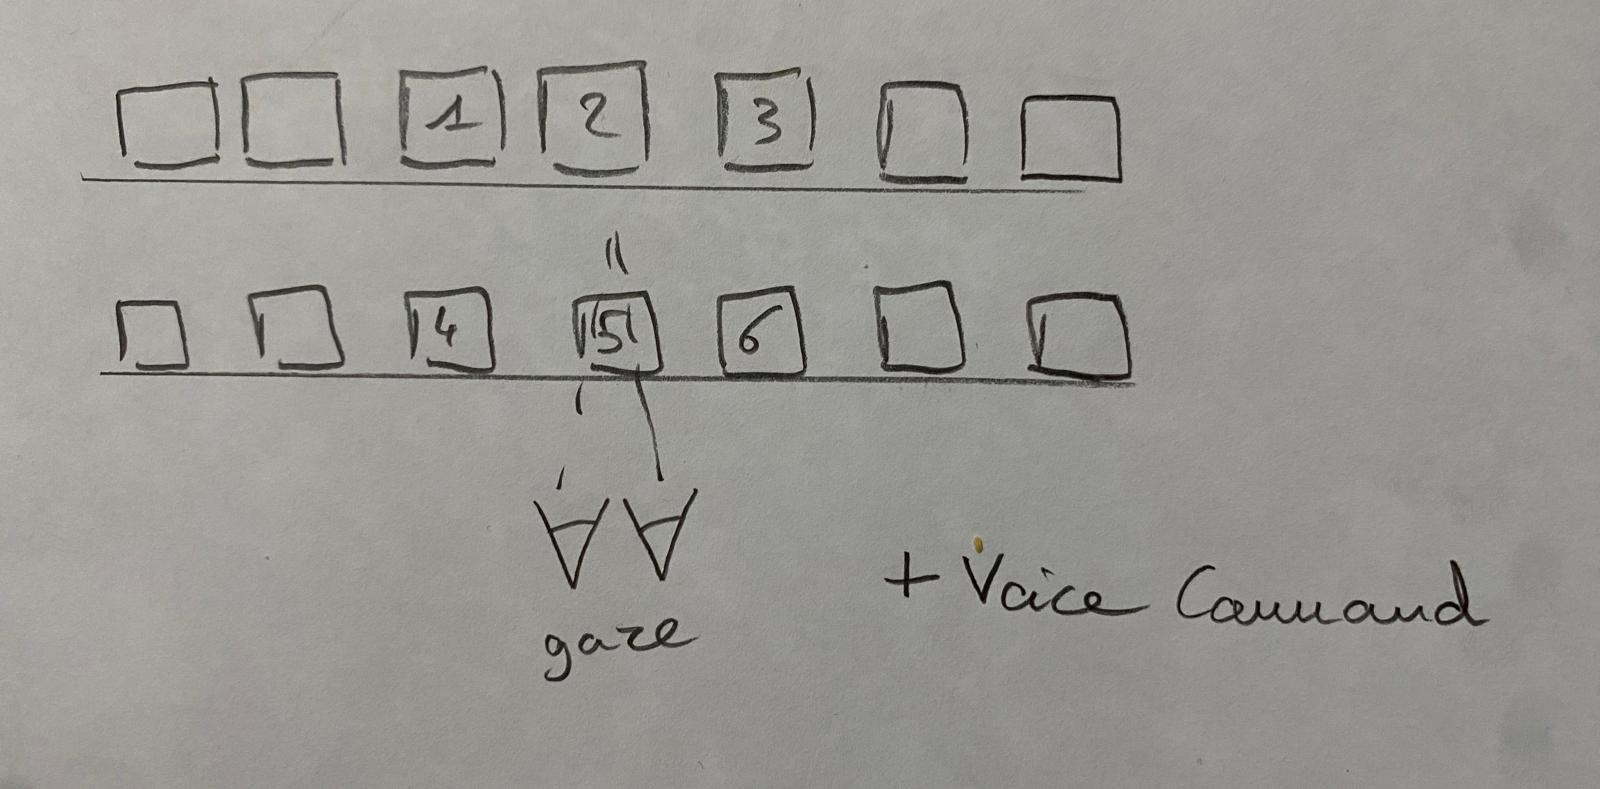 1 2 3
4 5 6
gaze
+ Voice Command